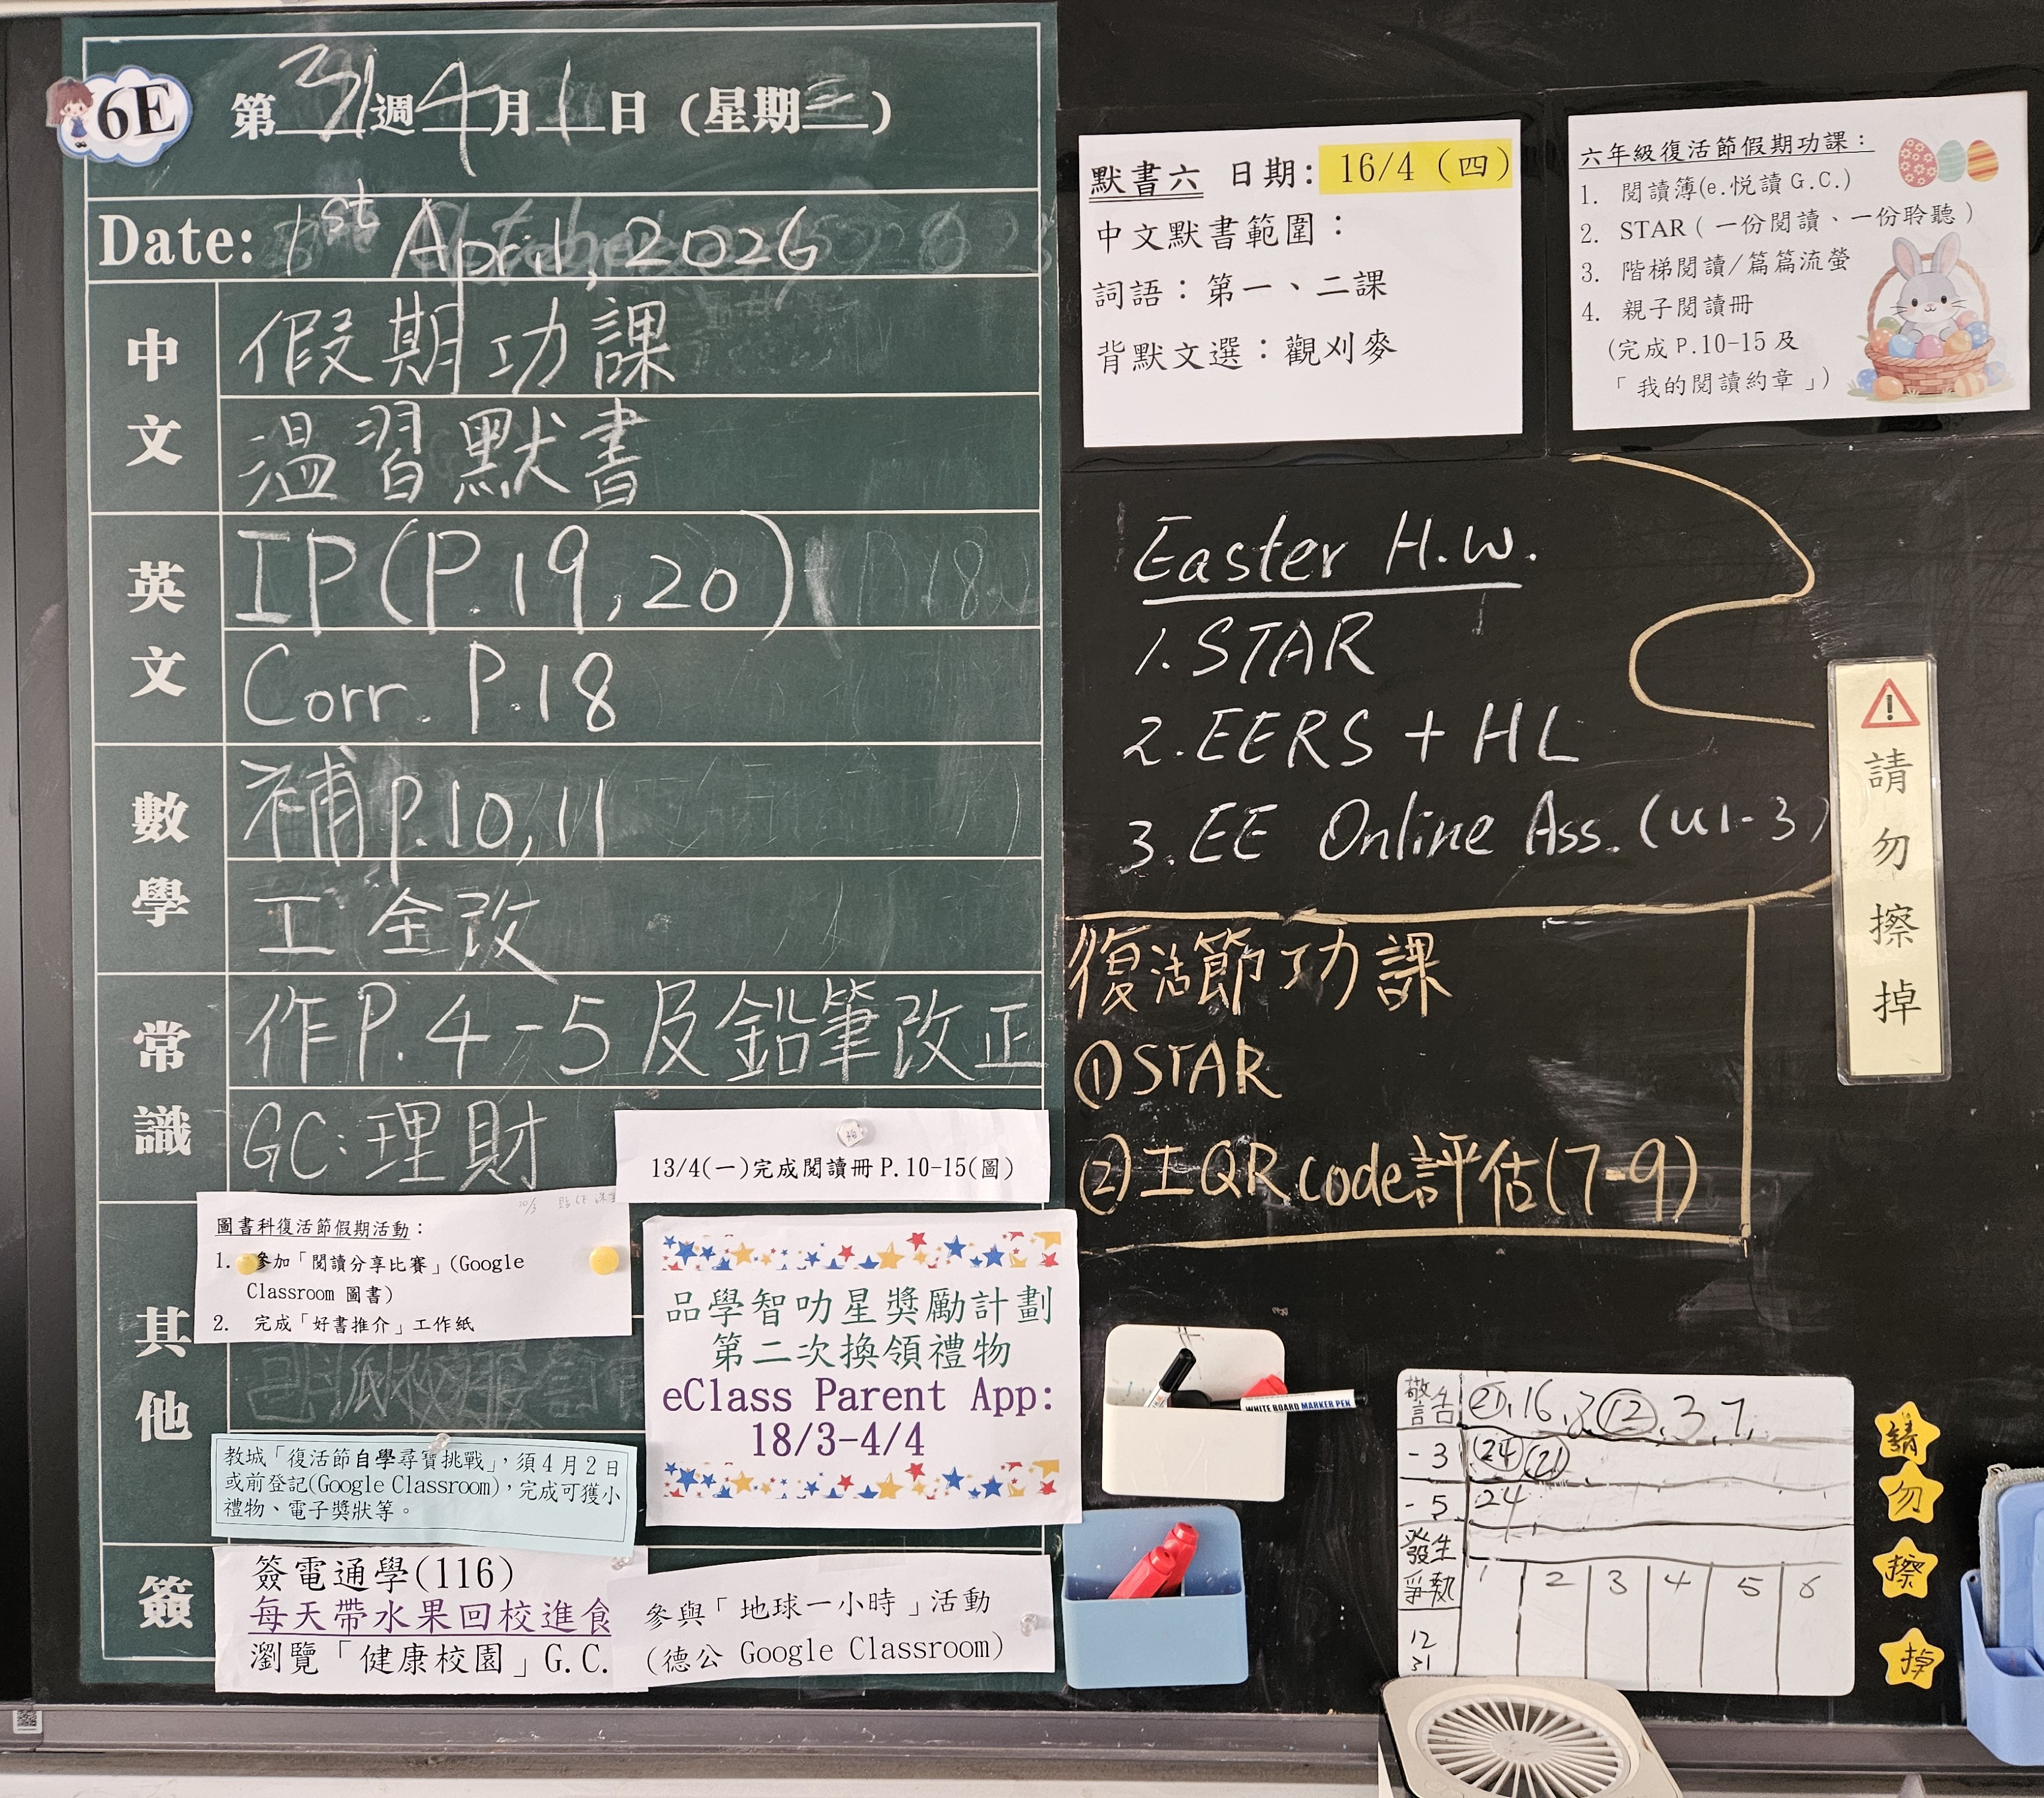 6E
第31週4月1日(星期三)
Date: 1st April, 2026
中文
假期功課
溫習默書
英文
IP(P.19,20)
Corr. P.18
數學
補P.10,11
工 全改
常識
作P.4-5及鉛筆改正
GC:理財
13/4(一)完成閱讀冊P.10-15(圖)
其他
圖書科復活節假期活動:
1. 參加「閱讀分享比賽」(Google
Classroom 圖書)
2. 完成「好書推介」工作紙
品學智叻星獎勵計劃
第二次換領禮物
eClass Parent App:
18/3-4/4
教城「復活節自學尋寶挑戰」,須4月2日
或前登記(Google Classroom),完成可獲小
禮物、電子獎狀等。
簽
簽電通學(116)
每天帶水果回校進食
瀏覽「健康校園」G.C.
參與「地球一小時」活動
(德公 Google Classroom)
默書六 日期: 16/4 (四)
中文默書範圍:
詞語:第一、二課
背默文選:觀刈麥
六年級復活節假期功課:
1. 閱讀簿(e.悅讀G.C.)
2. STAR(一份閱讀、一份聆聽)
3. 階梯閱讀/篇篇流螢
4. 親子閱讀冊
(完成P.10-15及
「我的閱讀約章」)
Easter H.W.
1. STAR
2. EERS + HL
3. EE Online Ass. (U1-3)
請勿擦掉
復活節功課
①STAR
②工QR code評估(7-9)
WHITE BOARD MARKER PEN
警告 21, 16, 2, 12, 3, 7,
-3 24 21
-5 24
發生爭執 1 2 3 4 5 6
12
31
請勿擦掉